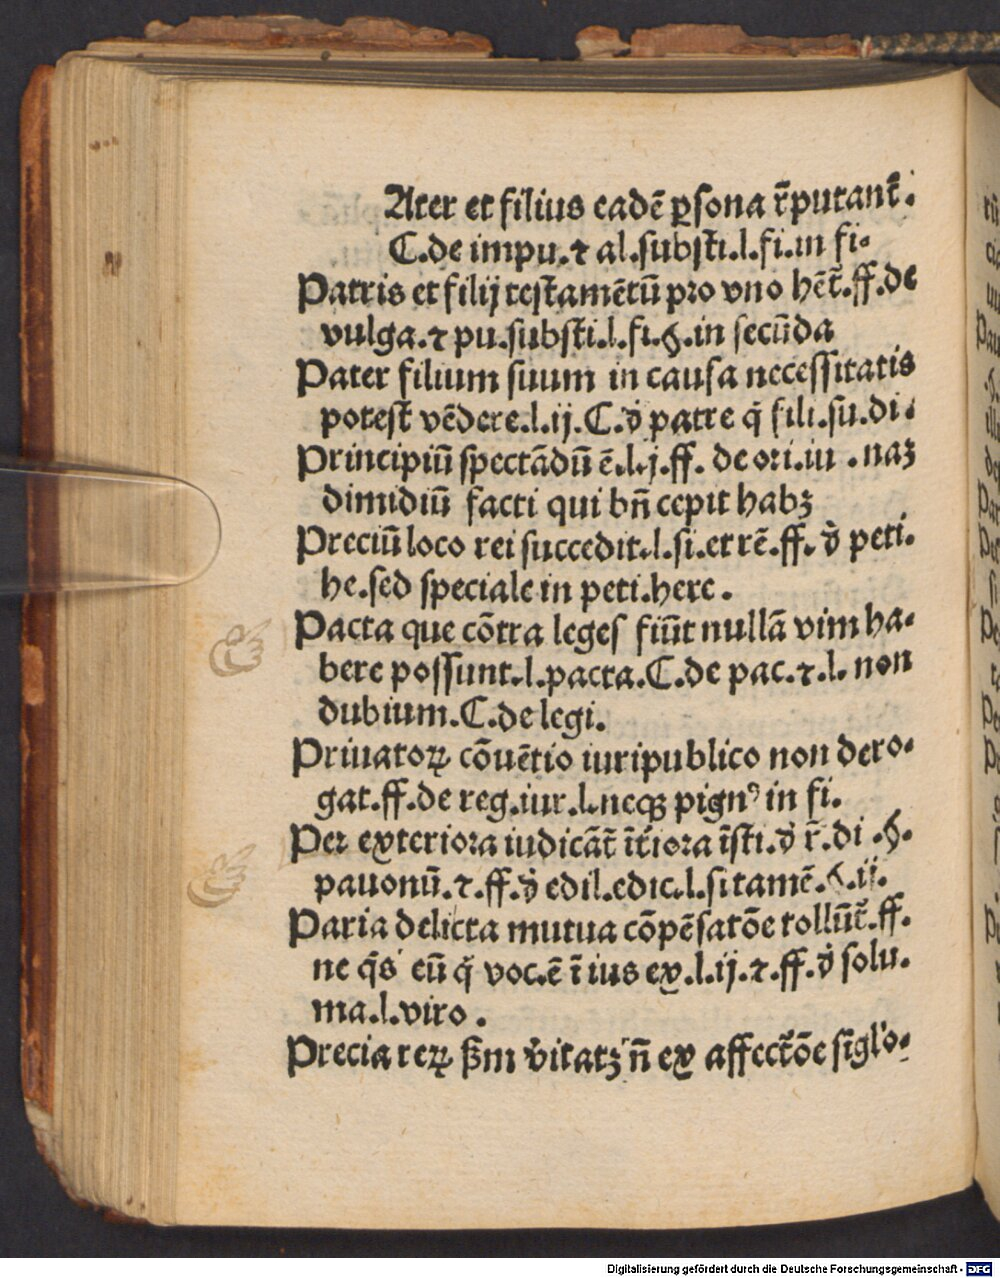 Ater et filius eadē ꝑsona r̄putant᷑.
C.de impu.⁊ al.substi.l.fi.in fi.
Patris et filij testamētū pro vno hēt᷑.ff.de
vulga.⁊ pu.substi.l.fi.§.in secūda
Pater filium suum in causa necessitatis
potest vēdere.l.ij.C.d̓ patre q̄ fili.su.di.
Principiū spectādū ē.l.j.ff. de ori.iu .naꝫ
dimidiū facti qui bn̄ cepit habꝫ
Preciū loco rei succedit.l.si.et rē.ff. d̓ peti.
he.sed speciale in peti.here.
Pacta que cōtra leges fiūt nullā vim ha-
bere possunt.l.pacta.C.de pac.⁊.l. non
dubium.C.de legi.
Priuatoꝝ cōuētio iuripublico non dero-
gat.ff.de reg.iur.l.neqꝫ pignꝰ in fi.
Per exteriora iudicāt᷑ īt̓iora īsti.d̓ r̄.di .§.
pauonū.⁊.ff.d̓ edil.edic.l.si tamē.§.ij.
Paria delicta mutua cōpēsatōe tollūt᷑.ff.
ne q̄s eū q̄ voc.ē ī ius ex.l.ij.⁊.ff.d̓ solu.
ma.l.viro .
Precia reꝝ ẜm v̓itatꝫ n̄ ex affect᷑ōe sīglo-
Digitalisierung gefördert durch die Deutsche Forschungsgemeinschaft - DFG